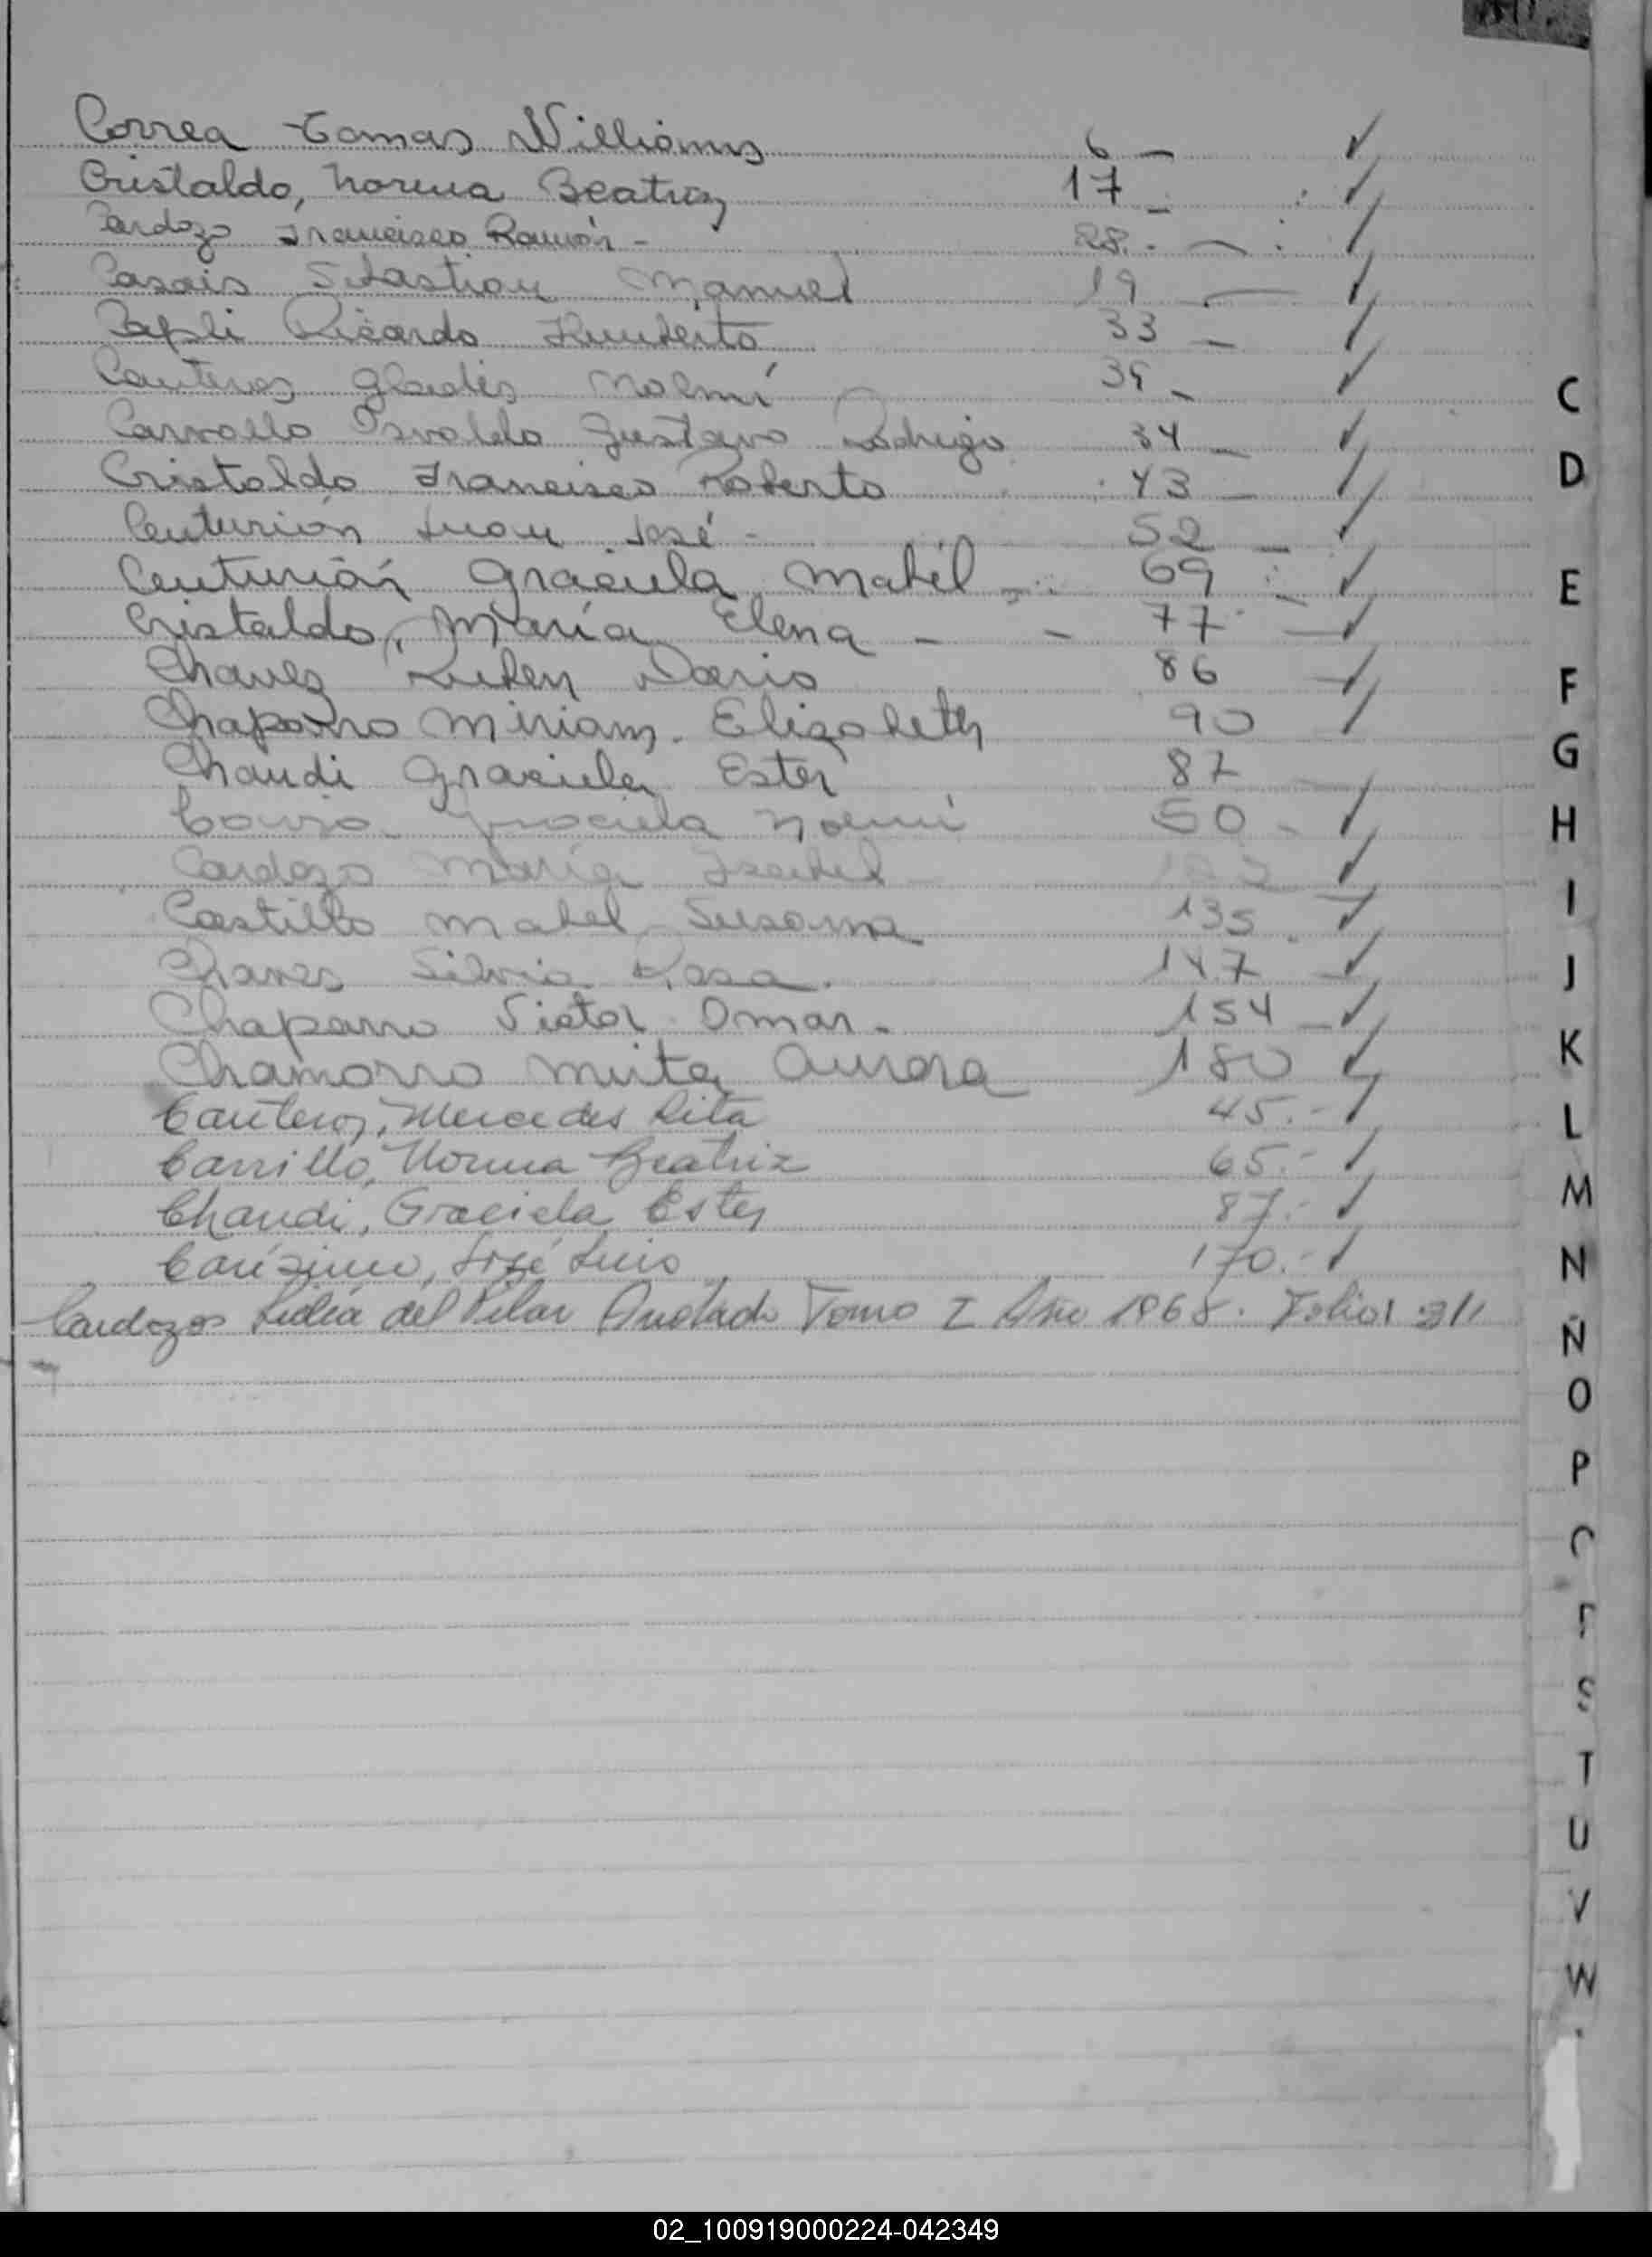 Correa Tomas Willians 6 — ✓
Cristaldo, Norma Beatriz 17 — ✓
Cardozo Francisco Ramón - 28. — ✓
Casais Sebastian Manuel 19 — ✓
Ricardo Humberto 33 — ✓
Canteros Gladis Noemí 39 — ✓
Osvaldo Gustavo Rodrigo 34 — ✓
Cristaldo Francisco Roberto 43 — ✓
Centurión Juan José - 52 — ✓
Centurión Graciela Mabel - 69 — ✓
Cristaldo, María Elena - - 77 — ✓
Chavez Ruben Dario 86 — ✓
Chaparro Miriam Elizabeth 90 ✓
Chaudi Graciela Ester 87 —
Graciela Noemí 50 - ✓
Cardozo María Isabel ✓
Castillo Mabel Susana 135 - ✓
Chaves Silvia Rosa. 147 — ✓
Chaparro Victor Omar - 154 — ✓
Chamorro Mirta Aurora 180 ✓
Canteros, Mercedes Rita 45.- ✓
Carrillo, Norma Beatriz 65.- ✓
Chaudi, Graciela Ester 87.- ✓
Carísimo, José Luis 170.- ✓
Cardozo Lidia del Pilar Anotada Tomo I Año 1968. Folio
C
D
E
F
G
H
I
J
K
L
M
N
Ñ
O
P
S
T
U
V
W
02_100919000224-042349